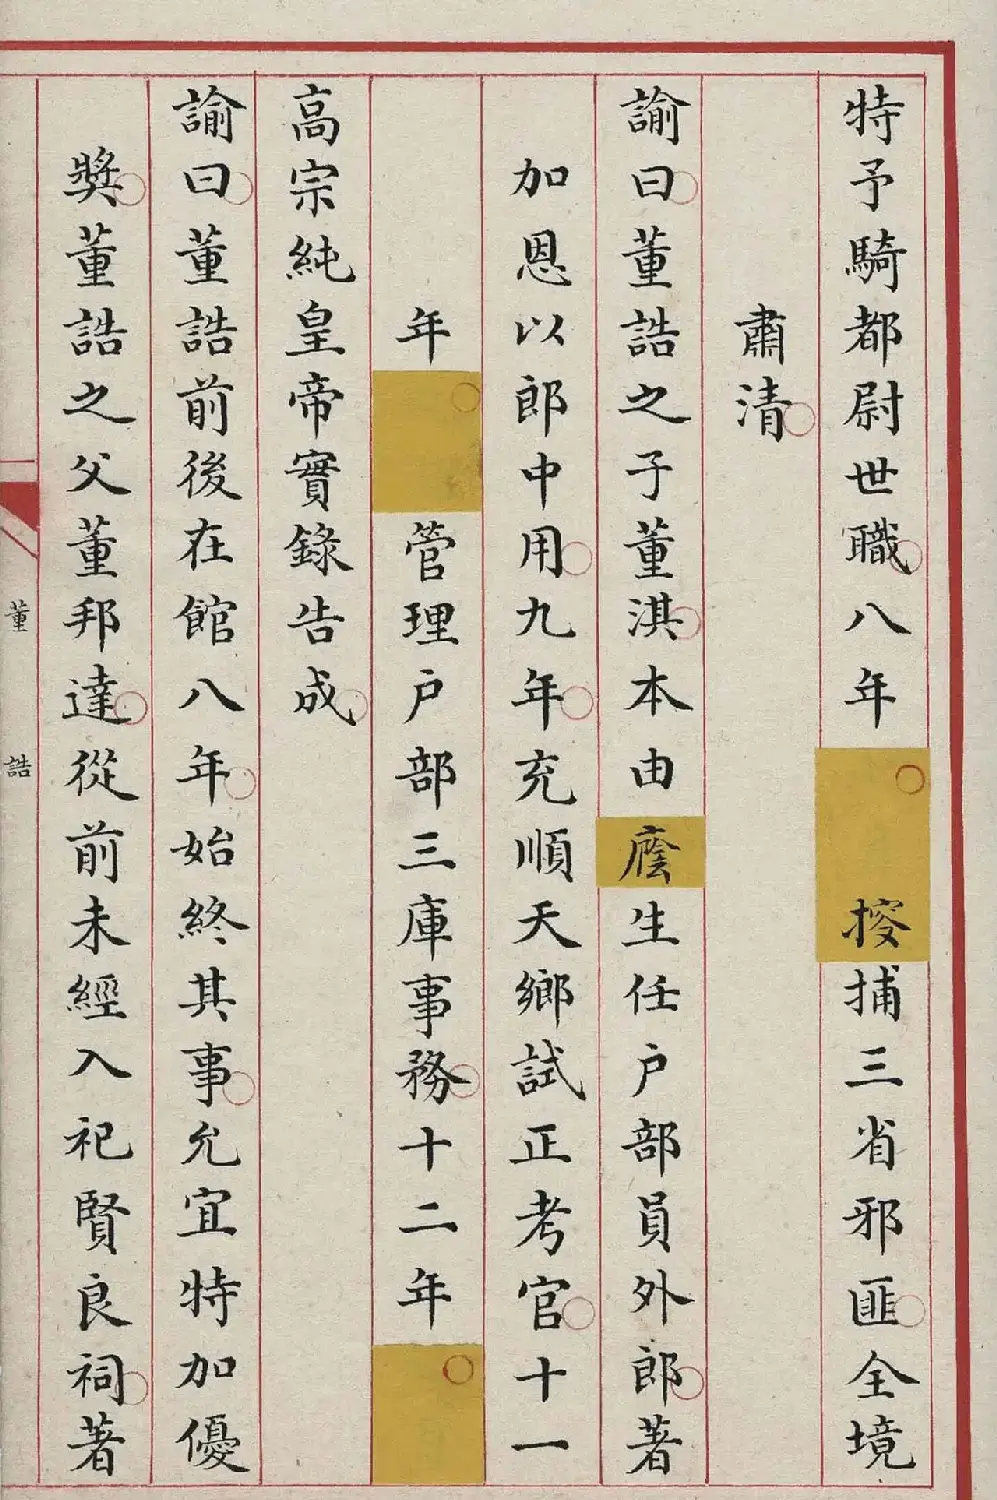 特予騎都尉世職八年搜捕三省邪匪全境
肅清
諭曰董誥之子董淇本由廕生任户部員外郎著
加恩以郎中用九年充順天鄉試正考官十一
年管理户部三庫事務十二年
高宗純皇帝實錄告成
諭曰董誥前後在館八年始終其事允宜特加優
獎董誥之父董邦達從前未經入祀賢良祠著
董誥